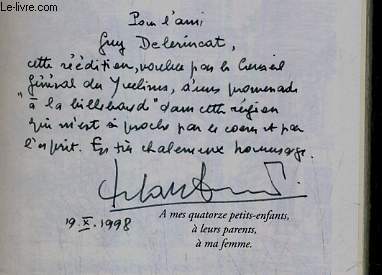 Le-livre.com
Pour l'ami
Guy Delerincat,
cette réédition, voulue par le Conseil
Général des Yvelines, d'une promenade
"à la billebaude" dans cette région
qui m'est si proche par le coeur et par
l'esprit. En très chaleureux hommage.
19.X.1998
A mes quatorze petits-enfants,
à leurs parents,
à ma femme.